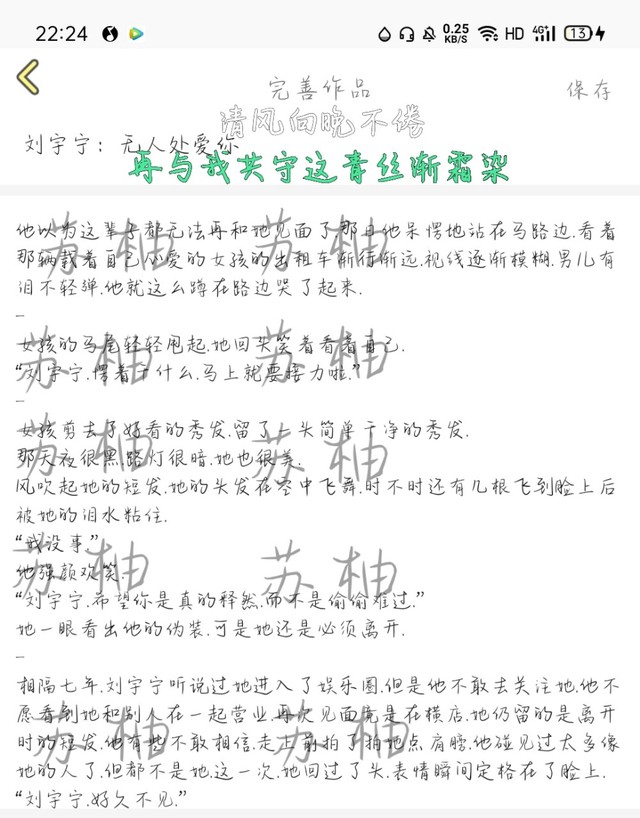 22:24
0.25
KB/S
HD
4G+
13
完善作品
保存
清风向晚不倦
刘宇宁：无人处爱你
再与我共守这青丝渐霜染
他以为这辈子都无法再和她见面了.那日他呆愣地站在马路边.看着
那辆载着自己心爱的女孩的出租车渐行渐远.视线逐渐模糊.男儿有
泪不轻弹.他就这么蹲在路边哭了起来.
–
女孩的马尾轻轻甩起.她回头笑着看着自己.
“刘宇宁.愣着干什么.马上就要接力啦.”
–
女孩剪去了好看的秀发.留了一头简单干净的秀发.
那天夜很黑.路灯很暗.她也很美.
风吹起她的短发.她的头发在空中飞舞.时不时还有几根飞到脸上后
被她的泪水粘住.
“我没事”
他强颜欢笑.
“刘宇宁.希望你是真的释然.而不是偷偷难过.”
她一眼看出他的伪装.可是她还是必须离开.
–
相隔七年.刘宇宁听说过她进入了娱乐圈.但是他不敢去关注她.他不
愿看到她和别人在一起营业.再次见面竟是在横店.她仍留的是离开
时的短发.他有些不敢相信.走上前拍了拍她点肩膀.他碰见过太多像
她的人了.但都不是她.这一次.她回过了头.表情瞬间定格在了脸上.
“刘宇宁.好久不见.”
苏柚
苏柚
苏柚
苏柚
苏柚
苏柚
苏柚
苏柚
苏柚
苏柚